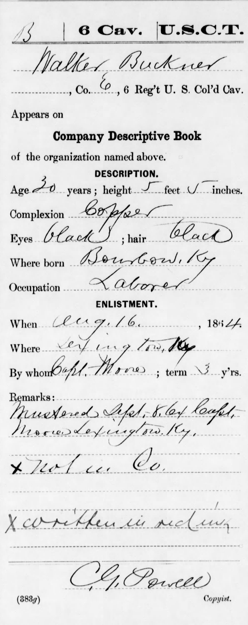 B | 6 Cav. | U.S.C.T.
Walker Buckner
, Co. E, 6 Reg't U. S. Col'd Cav.
Appears on
Company Descriptive Book
of the organization named above.
DESCRIPTION.
Age 30 years; height 5 feet 5 inches.
Complexion Copper
Eyes black; hair black
Where born Bourbon, Ky
Occupation Laborer
ENLISTMENT.
When Aug. 16., 1864.
Where Lexington, Ky
By whom Capt. Moore; term 3 y'rs.
Remarks:
Mustered Sept. 8. 64 Capt.
Moore Lexington, Ky.
x not in Co.
x written in red ink
C. G. Powell
(383g) Copyist.